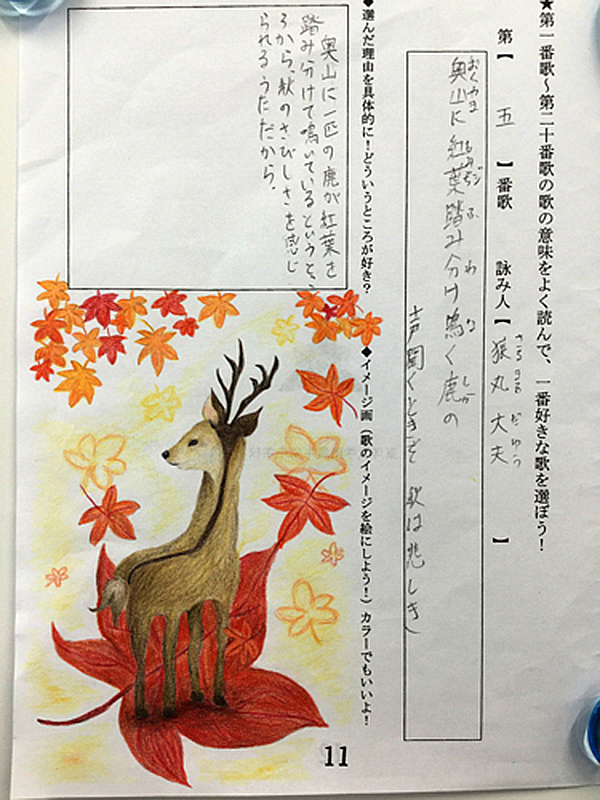 ★第一番歌～第二十番歌の歌の意味をよく読んで、一番好きな歌を選ぼう！
第【 五 】番歌 詠み人【 猿丸 大夫 】
さるまる だゆう
奥山に 紅葉踏み分け 鳴く鹿の
おくやま もみぢ ふ わ な しか
声聞くときぞ 秋は悲しき
◆選んだ理由を具体的に！どういうところが好き？
奥山に一匹の鹿が紅葉を
踏み分けて鳴いているというところ
ろから、秋のさびしさを感じ
られるうただから。
◆イメージ画（歌のイメージを絵にしよう！）カラーでもいいよ！
11